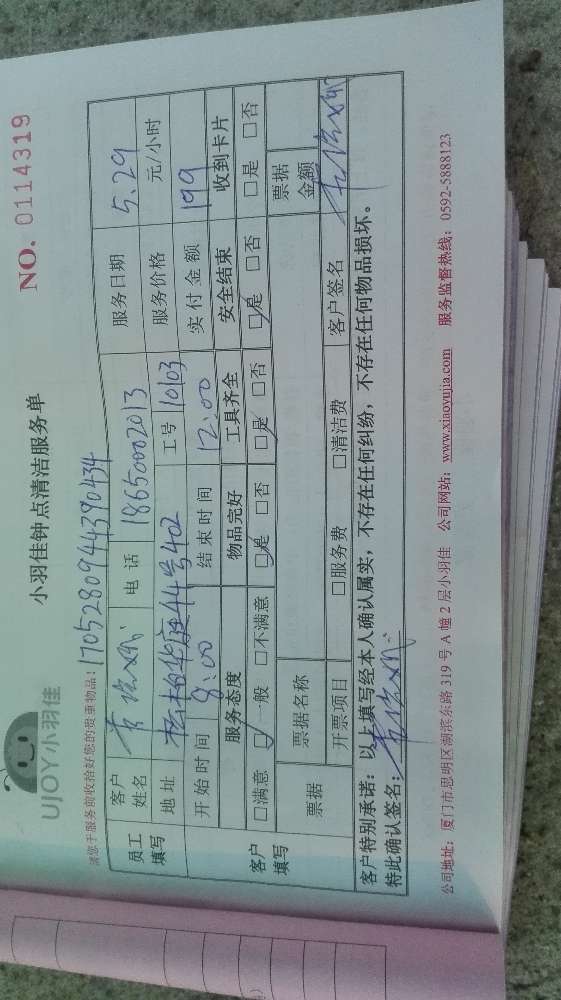 UJOY小羽佳
小羽佳钟点清洁服务单
NO. 0114319
请您于服务前收拾好您的贵重物品: 170528094439 0434
员工填写 客户姓名 电话 18650002013 服务日期 5.29
地址 松柏华庭44号402 工号 10103 服务价格 元/小时
开始时间 8:00 结束时间 12:00 实付金额 199
客户填写 服务态度 物品完好 工具齐全 安全结束 收到卡片
□满意 □一般 □不满意 □是 □否 □是 □否 □是 □否 □是 □否
票据 票据名称 票据金额
开票项目 □服务费 □清洁费 客户签名
客户特别承诺: 以上填写经本人确认属实,不存在任何纠纷,不存在任何物品损坏。
特此确认签名:
公司地址: 厦门市思明区湖滨东路 319 号 A 幢 2 层小羽佳 公司网站: www.xiaoyujia.com 服务监督热线: 0592-5888123